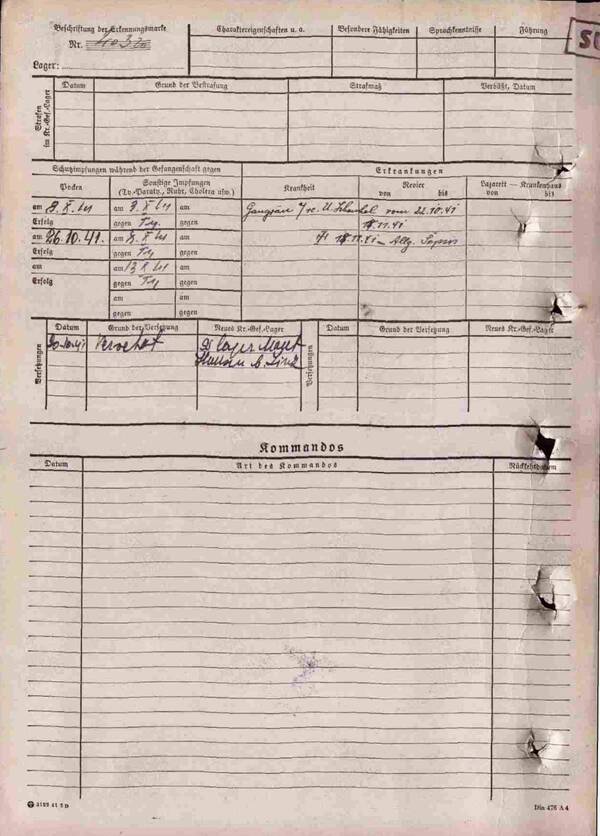 Beschriftung der Erkennungsmarke
Nr.
Lager:
Charaktereigenschaften u. a.
Besondere Fähigkeiten
Sprachkenntnisse
Führung
Strafen im Kr.-Gef.-Lager
Datum
Grund der Bestrafung
Strafmaß
Verbüßt, Datum
Schutzimpfungen während der Gefangenschaft gegen
Erkrankungen
Pocken
Sonstige Impfungen
(Ty.-Paraty., Ruhr, Cholera usw.)
Krankheit
Revier
von bis
Lazarett — Krankenhaus
von bis
am 8. X. 41 am 8. X 41 am
Erfolg gegen Ty. gegen
am 26.10.41. am am
Erfolg gegen Ty gegen
am am 13 X 41 am
Erfolg gegen Ty gegen
am am
gegen gegen
vom 22.10.41
11.41
Allg. Sepsis
Versetzungen
Datum
Grund der Versetzung
Neues Kr.-Gef.-Lager
Versetzungen
Datum
Grund der Versetzung
Neues Kr.-Gef.-Lager
10.41 Versetzt
Kommandos
Datum
Art des Kommandos
Rückkehrdatum
3125 41 2 D
Din 476 A 4